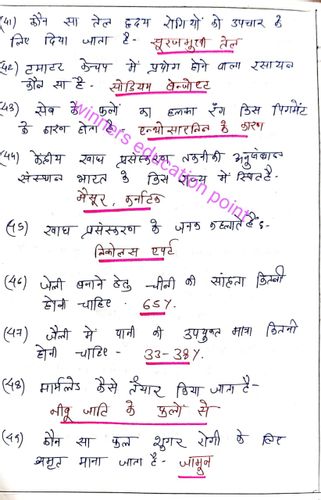 (41) कौन सा तेल हृदय रोगियों को उपचार के
लिए दिया जाता है- सूरजमुखी तेल
(42) टमाटर केचप में प्रयोग होने वाला रसायन
कौन सा है- सोडियम बेन्जोएट
(43) सेब के फलों का हलका रंग किस पिगमेंट
के कारण होता है एन्थोसायनिन के कारण
(44) केंद्रीय खाद्य प्रसंस्करण तकनीकी अनुसंधान
संस्थान भारत के किस राज्य में स्थित है-
मैसूर, कर्नाटक
(45) खाद्य प्रसंस्करण के जनक कहलाते हैं:-
निकोलस एपर्ट
(46) जेली बनाने हेतु चीनी की सांद्रता कितनी
होनी चाहिए - 65%
(47) जैली में पानी की उपयुक्त मात्रा कितनी
होनी चाहिए- 33-38%
(48) मार्मलेड कैसे तैयार किया जाता है-
नीबू जाति के फलों से
(49) कौन सा फल शुगर रोगी के लिए
अमृत माना जाता है- जामुन
winners education point